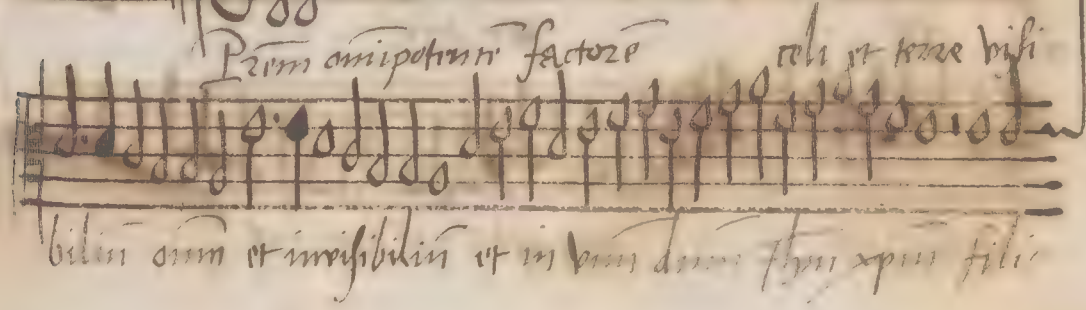 Prēm om̄ipotentē factorē celi et terre visi
biliū om̄m et invisibiliū et in vnū dn̄m Jhm̄ xp̄m fili